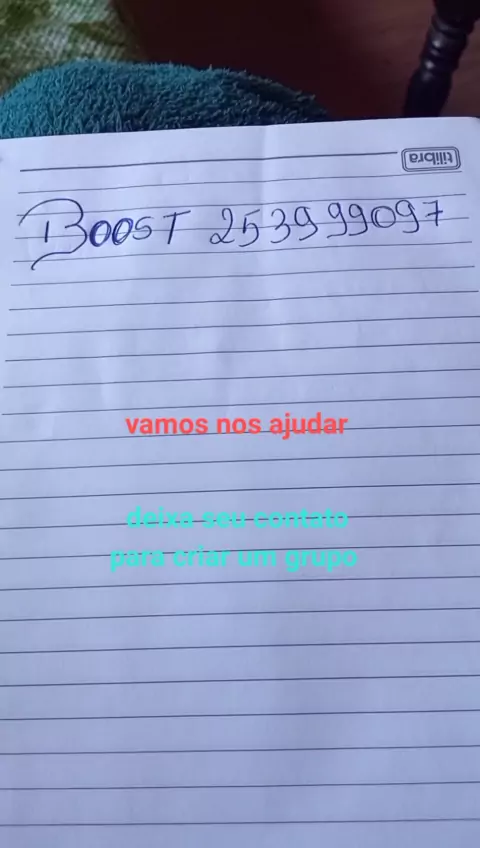 tilibra
BOOST 253999097
vamos nos ajudar
deixa seu contato
para criar um grupo